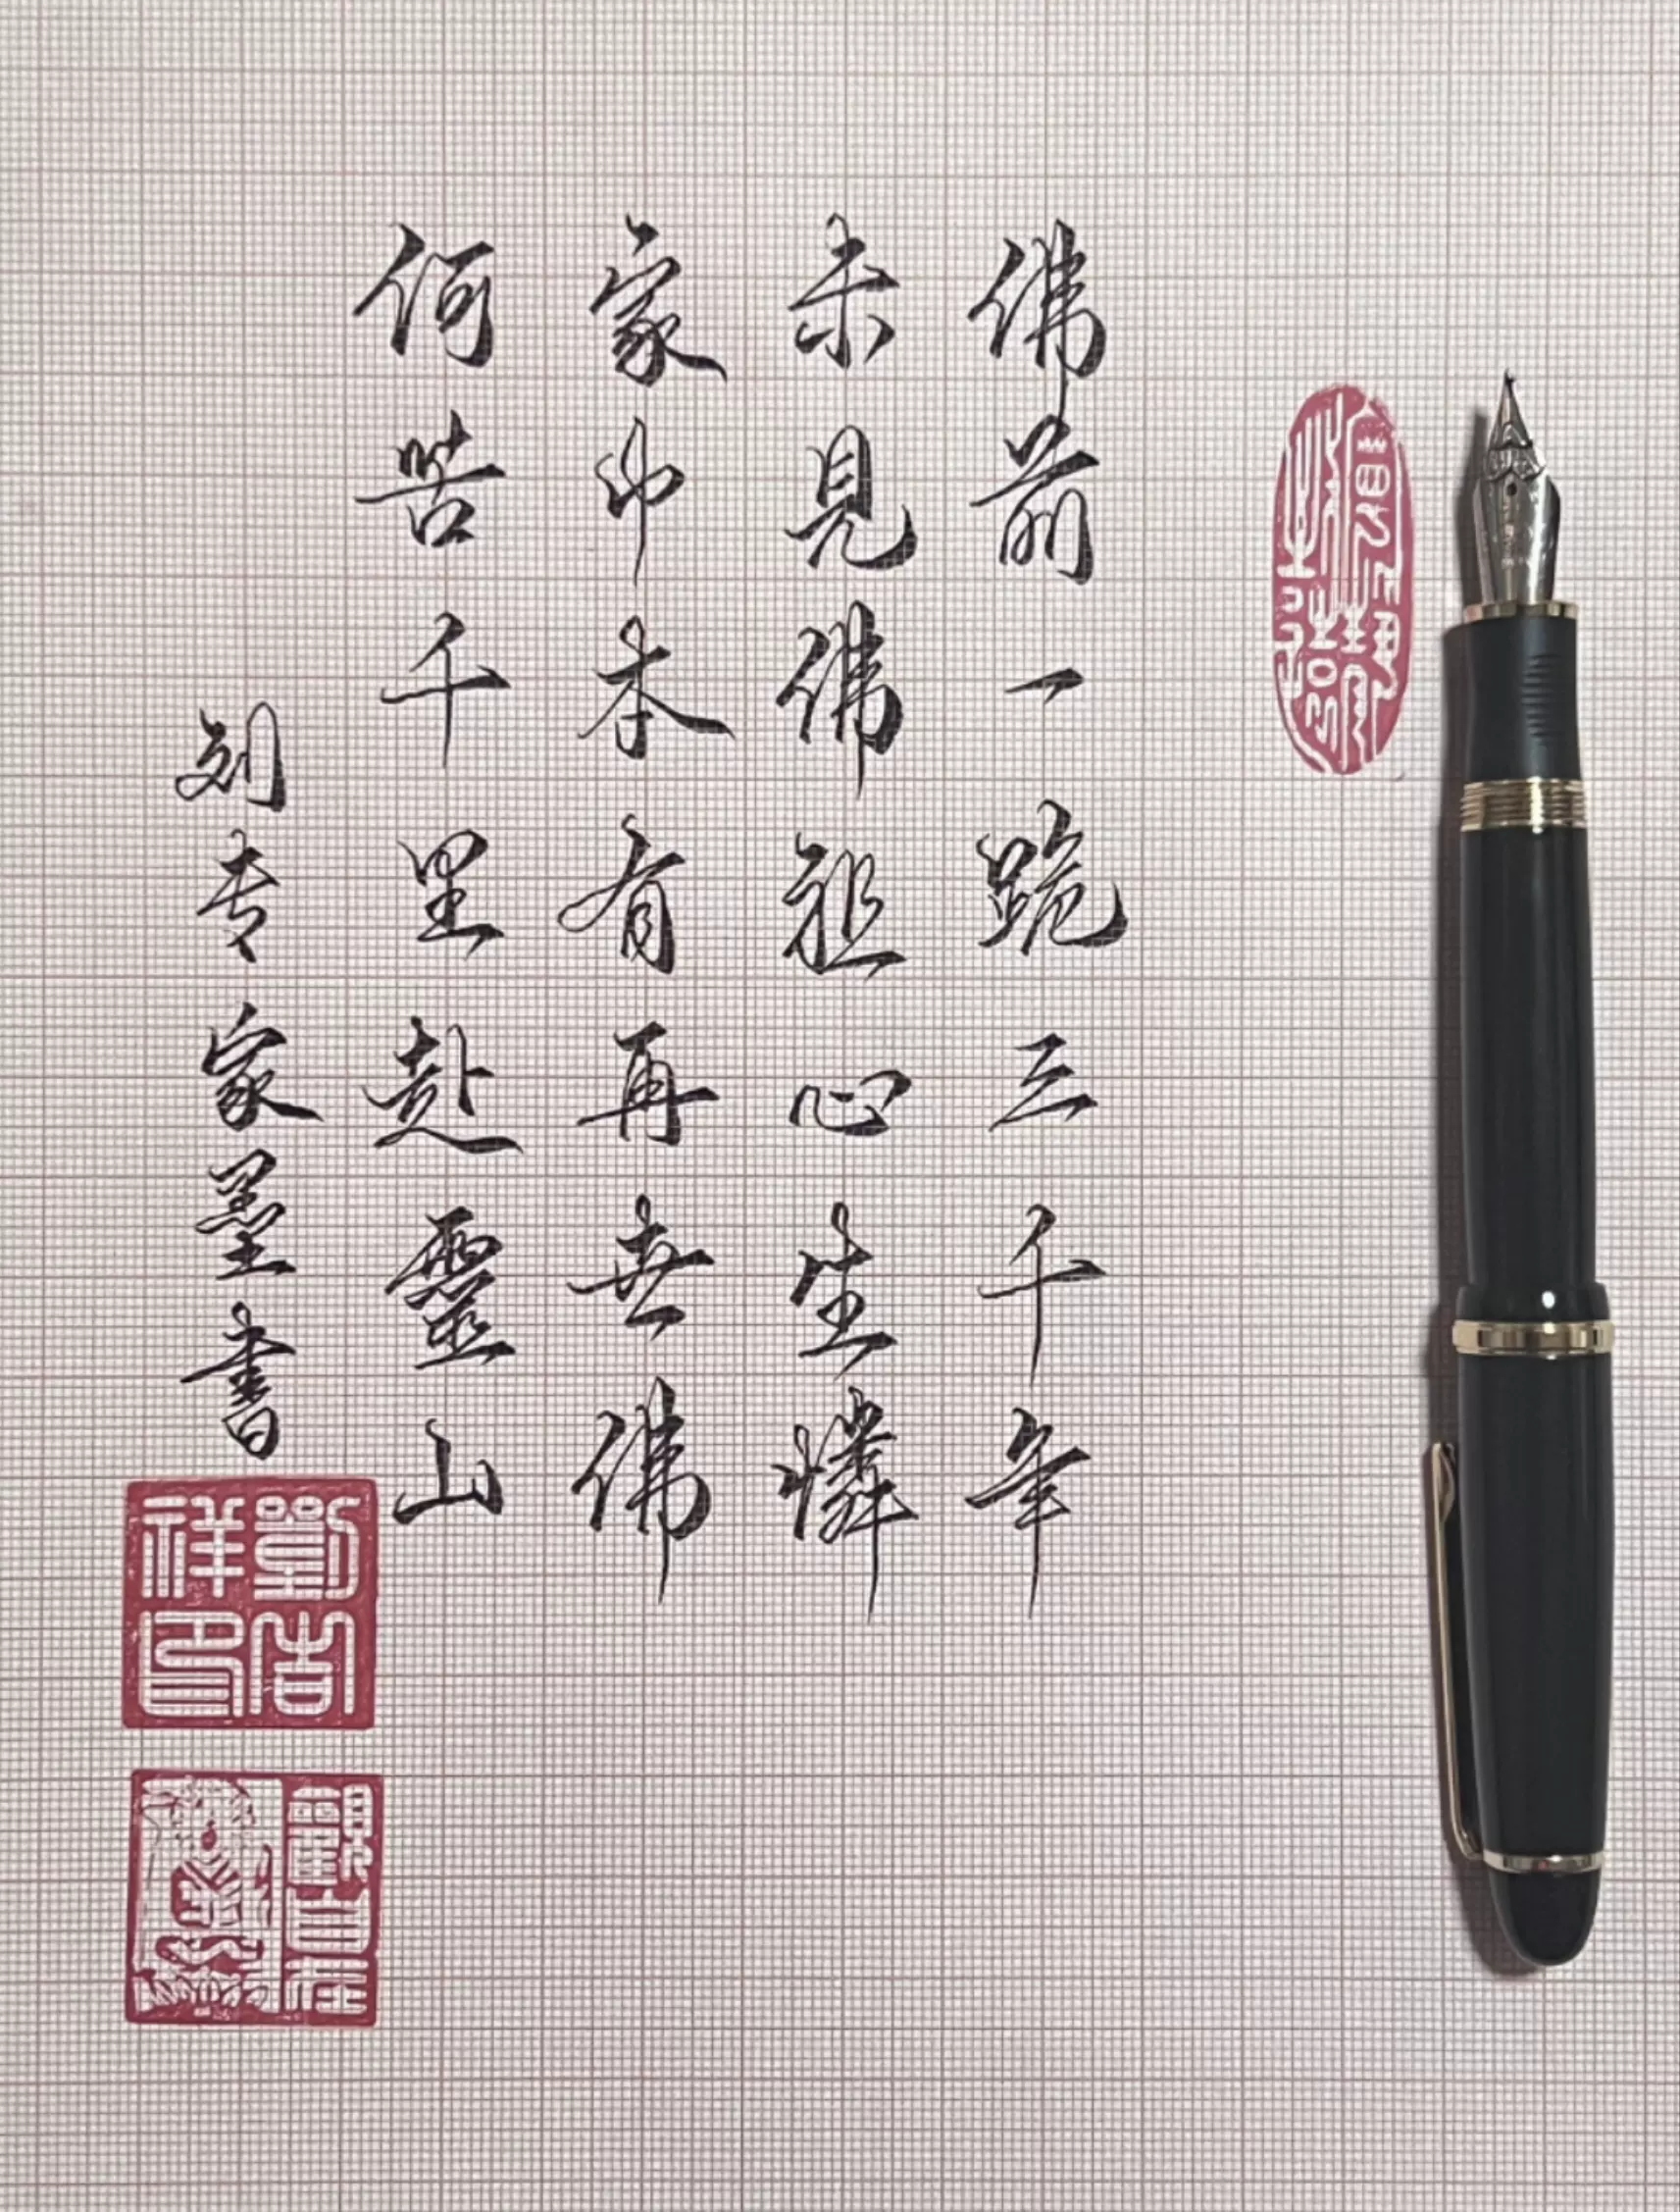 佛前一跪三千年
未見佛祖心生憐
家中本有再世佛
何苦千里赴靈山
刘专家墨书
劉尚祥印
觀自在